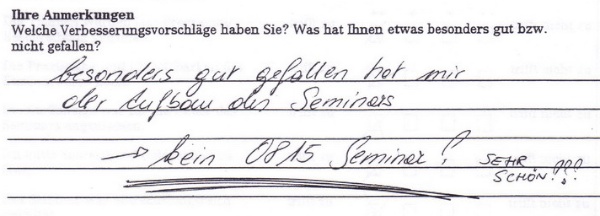 Ihre Anmerkungen
Welche Verbesserungsvorschläge haben Sie? Was hat Ihnen etwas besonders gut bzw.
nicht gefallen?
besonders gut gefallen hat mir
der Aufbau des Seminars
→ kein 0815 Seminar!
SEHR
SCHÖN!!!